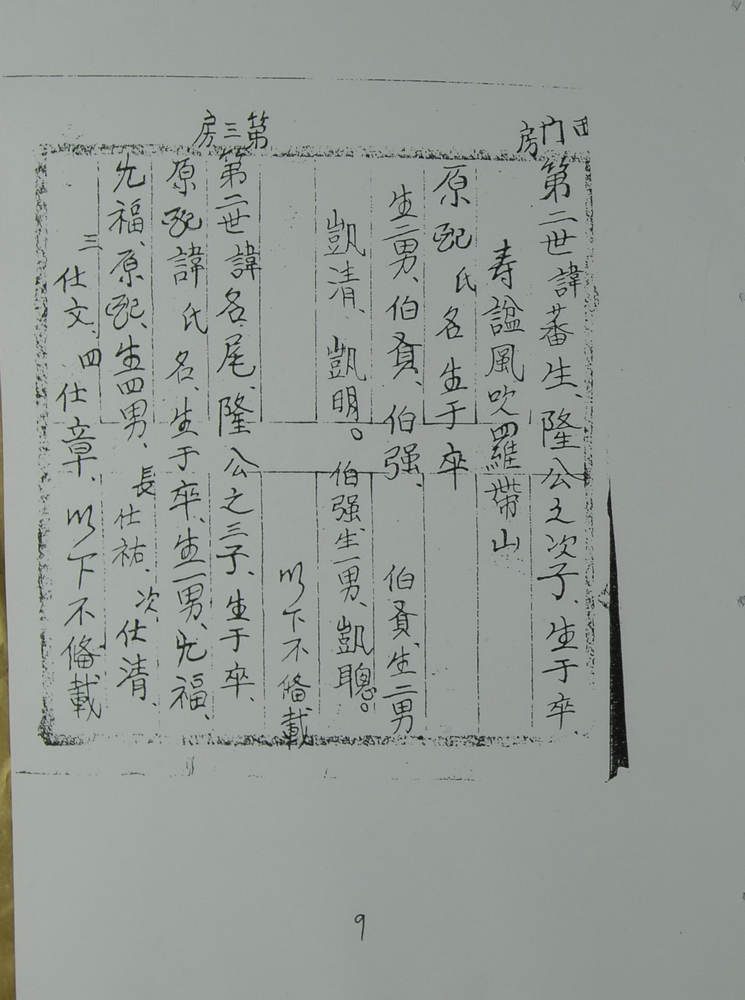 門房
第二世諱蕃生、隆公之次子、生于卒、
寿諡風吹羅带山
原配氏名生于卒
生二男、伯貢、伯强、伯貢、生二男
凱清、凱明。伯强、生一男、凱聰。
以下不偹載
第三房
第二世諱名尾、隆公之三子、生于卒、
原配諱氏名、生于卒、生一男、允福、
允福、原配、生四男、長仕祐、次、仕清、
三仕文、四仕章、以下不偹載
9